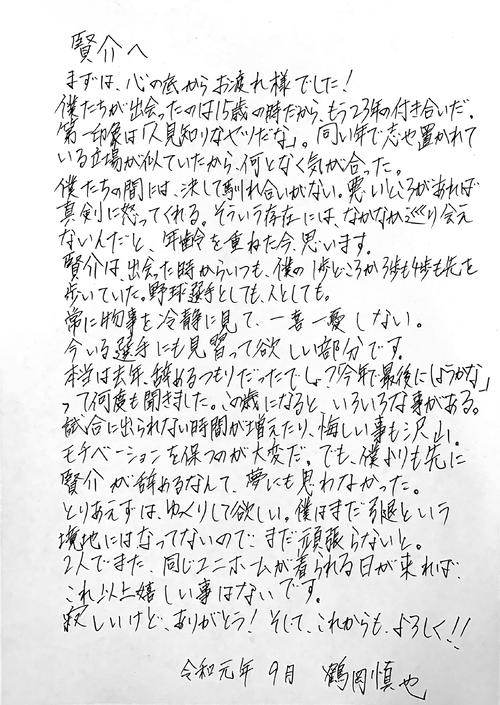 賢介へ
まずは、心の底からお疲れ様でした！
僕たちが出会ったのは15歳の時だから、もう23年の付き合いだ。
第一印象は「人見知りなヤツだな」。同い年で志や置かれて
いる立場が似ていたから、何となく気が合った。
僕たちの間には、決して馴れ合いがない。悪いところがあれば
真剣に怒ってくれる。そういう存在には、なかなか巡り会え
ない人だと、年齢を重ねた今、思います。
賢介は、出会った時からいつも、僕の1歩どころか3歩も4歩も先を
歩いていた。野球選手としても、人としても。
常に物事を冷静に見て、一喜一憂しない。
今いる選手にも見習って欲しい部分です。
本当は去年、辞めるつもりだったでしょ？「今年で最後にしようかな」
って何度も聞きました。この歳になると、いろいろな事がある。
試合に出られない時間が増えたり、悔しい事も沢山。
モチベーションを保つのが大変だ。でも、僕よりも先に
賢介が辞めるなんて、夢にも思わなかった。
とりあえずは、ゆっくりして欲しい。僕はまだ引退という
境地にはなってないので、まだ頑張らないと。
2人でまた、同じユニホームが着られる日が来れば、
これ以上嬉しい事はないです。
寂しいけど、ありがとう！そして、これからも、よろしく！！
令和元年 9月 鶴岡慎也